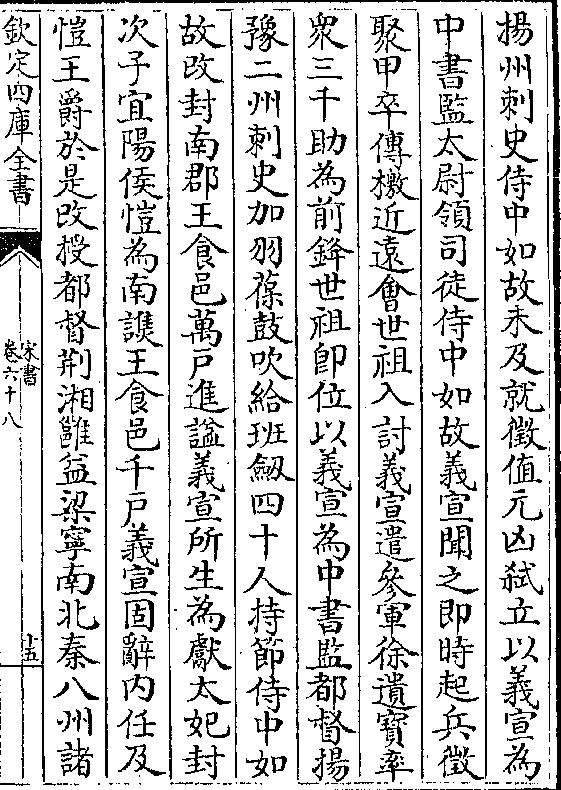 揚州刺史侍中如故未及就徵值元凶弑立以義宣為
中書監太尉領司徒侍中如故義宣聞之即時起兵徵
聚甲卒傳檄近遠會世祖入討義宣遣參軍徐遺寶率
衆三千助為前鋒世祖即位以義宣為中書監都督揚
豫二州刺史加羽葆鼓吹給班劒四十人持節侍中如
故改封南郡王食邑萬戸進諡義宣所生為獻太妃封
次子宜陽侯愷為南譙王食邑千戸義宣固辭内任及
愷王爵於是改授都督荆湘雝益梁寧南北秦八州諸
欽定四庫全書
宋書
卷六十八
十五